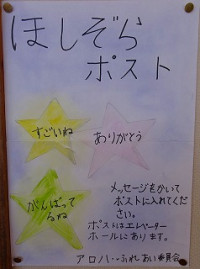 ほしぞら
ポスト
すごいね
ありがとう
がんばって
るね
メッセージをかいて
ポストに入れてくだ
さい。
ポストはエレベーター
ホールにあります。
アロハ・ふれあい委員会